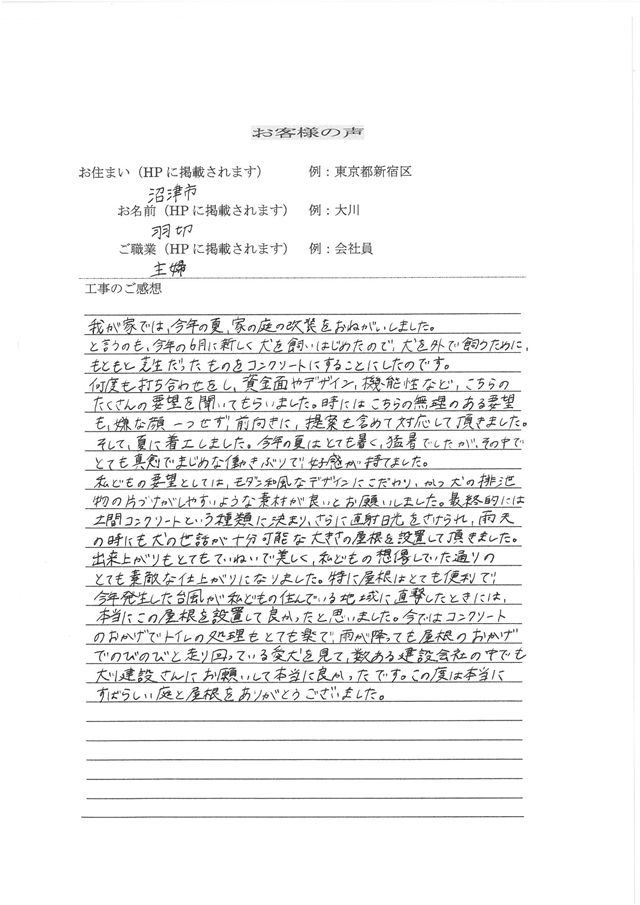 お客様の声
お住まい（HPに掲載されます） 例：東京都新宿区
沼津市
お名前（HPに掲載されます） 例：大川
羽切
ご職業（HPに掲載されます） 例：会社員
主婦
工事のご感想
我が家では、今年の夏、家の庭の改装をおねがいしました。
と言うのも、今年の6月に新しく犬を飼いはじめたので、犬を外で飼うために、
もともと芝生だったものをコンクリートにすることにしたのです。
何度も打ち合わせをし、資金面やデザイン、機能性など、こちらの
たくさんの要望を聞いてもらいました。時にはこちらの無理のある要望
も、嫌な顔一つせず前向きに、提案も含めて対応して頂きました。
そして、夏に着工しました。今年の夏はとても暑く、猛暑でしたが、その中で
とても真剣でまじめな働きぶりで好感が持てました。
私どもの要望としては、モダン和風なデザインにこだわり、かつ犬の排泄
物の片づけがしやすいような素材が良いとお願いしました。最終的には
土間コンクリートという種類に決まり、さらに直射日光をさけられ、雨天
の時にも犬の世話が十分可能な大きさの屋根を設置して頂きました。
出来上がりもとてもていねいで美しく、私どもの想像していた通りの
とても素敵な仕上がりになりました。特に屋根はとても便利で
今年発生した台風が私どもの住んでいる地域に直撃したときには、
本当にこの屋根を設置して良かったと思いました。今ではコンクリート
のおかげでトイレの処理もとても楽で、雨が降っても屋根のおかげ
でのびのびと走り回っている愛犬を見て、数ある建設会社の中でも
大川建設さんにお願いして本当に良かったです。この度は本当に
すばらしい庭と屋根をありがとうございました。